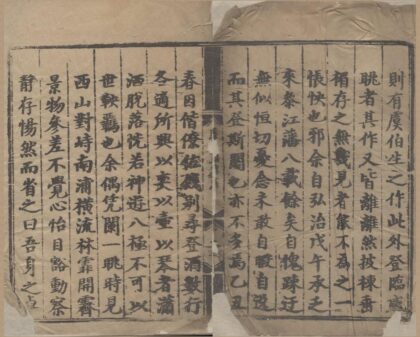 則有虞伯生之作此外登臨感
眺者其作又皆離離然披棘喬
猶存之無幾見者能不為之一
悵怏也耶余自弘治戊午承乏
來叅江藩八載餘矣自愧疎迂
無似恒切憂念未敢自暇自逸
而其登斯閣也亦不多焉乙丑
春因偕僚佐餞別尋登酒數行
各適所興以奕以壷以琴者瀟
洒脫落恍若神遊八極不可以
世軮羈也余偶凭闌一眺時見
西山對峙南浦橫流林霏開霽
景物參差不覺心怡目豁動察
靜存惕然而省之曰吾身之